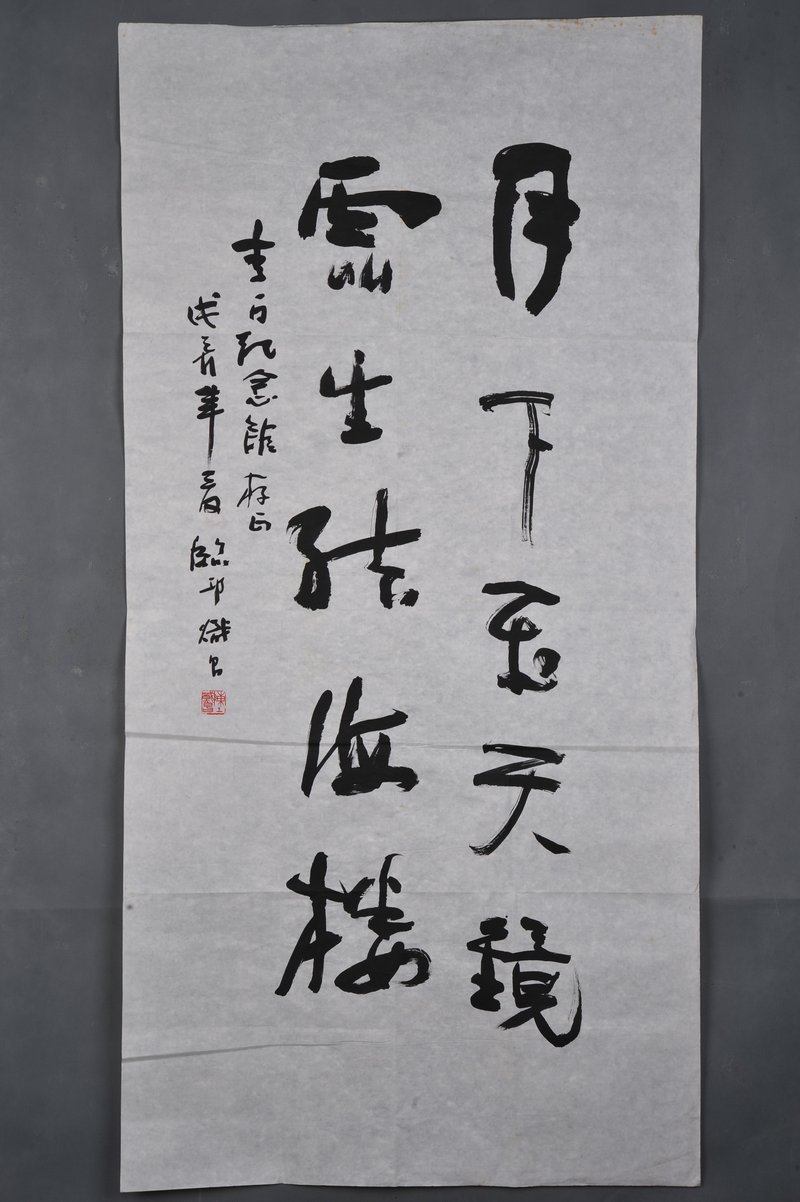 月下飛天鏡
雲生結海樓
李白紀念館存正
戊辰年 臨邛